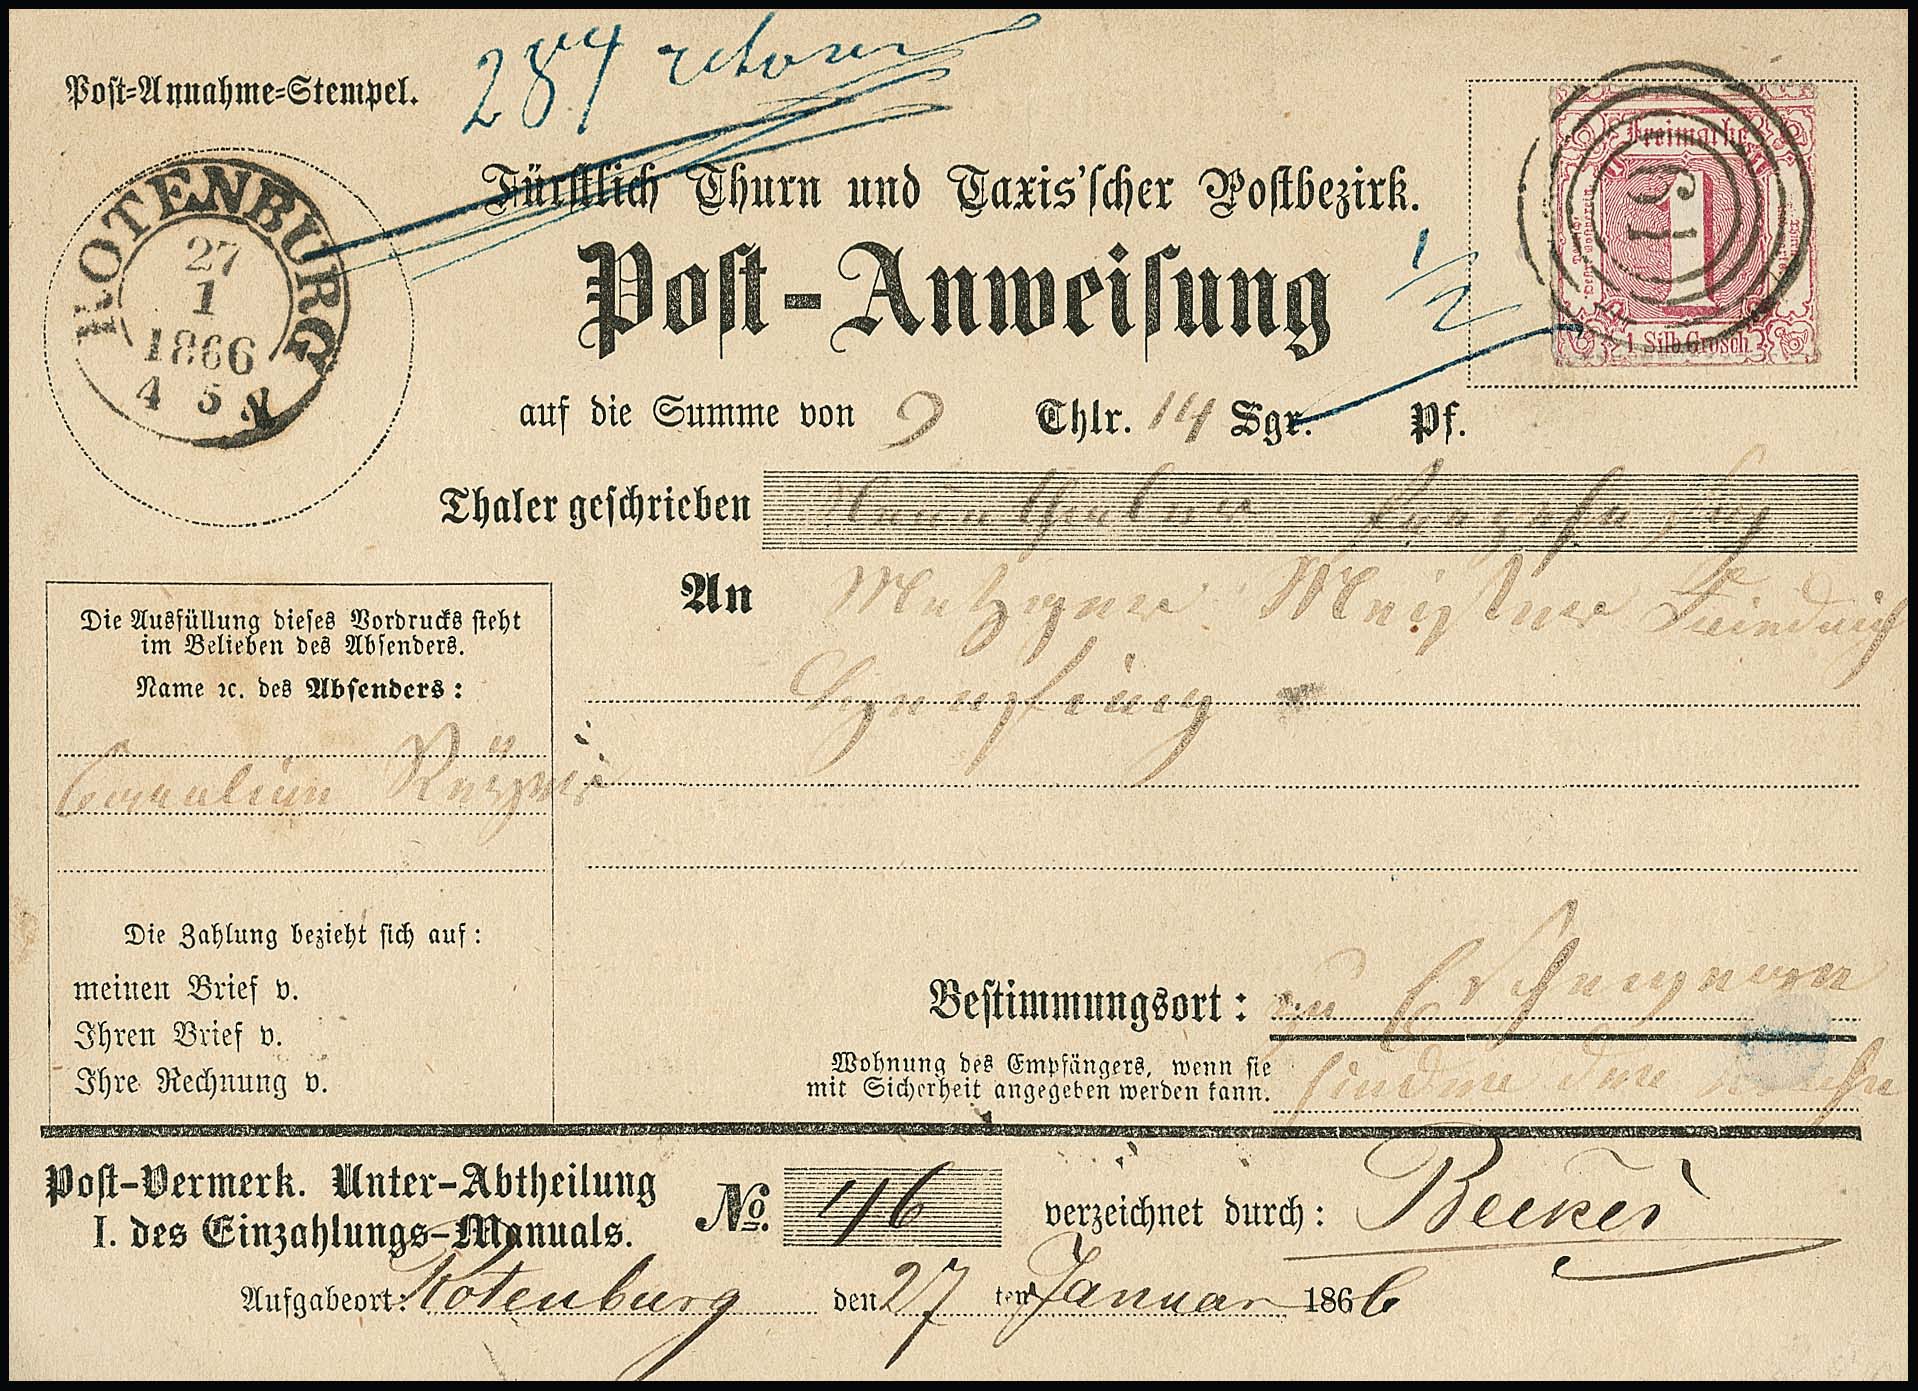 287 retour
Post-Annahme-Stempel.
ROTENBURG
27
1
1866
4 5 N
Freimarke
1
1 Silb. Grosch.
19
Fürstlich Thurn und Taxis'scher Postbezirk.
Post-Anweisung
1/2
auf die Summe von 9 Thlr. 14 Sgr. Pf.
Thaler geschrieben Neun Thaler vierzehn Sg
An Metzger Meister Friedrich
Die Ausfüllung dieses Vordrucks steht
im Belieben des Absenders.
Name ꝛc. des Absenders:
Die Zahlung bezieht sich auf:
meinen Brief v.
Ihren Brief v.
Ihre Rechnung v.
Bestimmungsort: zu
Wohnung des Empfängers, wenn sie
mit Sicherheit angegeben werden kann.
Post-Vermerk. Unter-Abtheilung
I. des Einzahlungs-Manuals.
No. 46 verzeichnet durch: Becker
Aufgabeort: Rotenburg den 27 ten Januar 1866